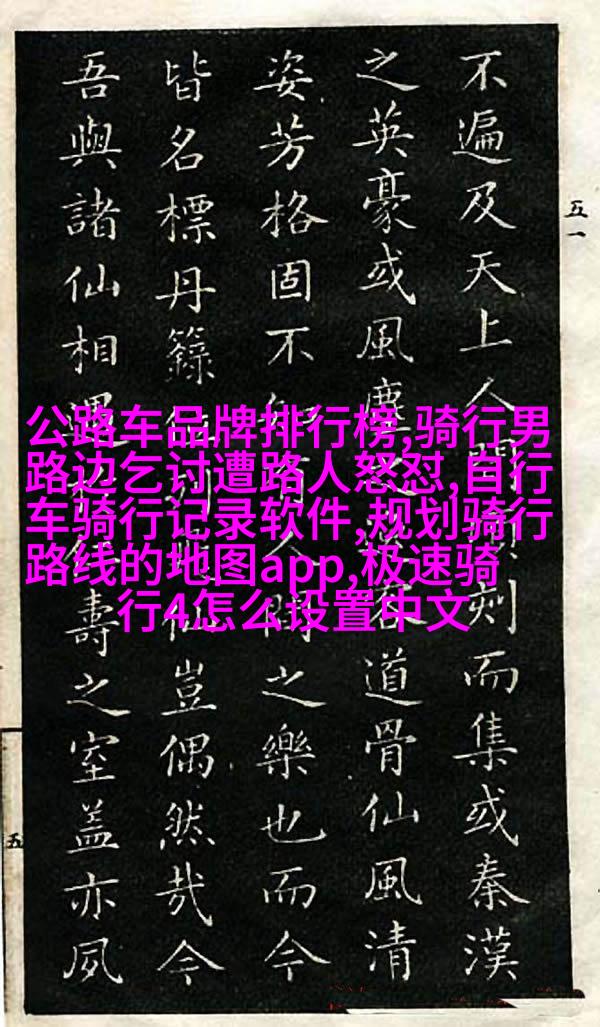 不遍及天上人間刻而集或秦漢
之英豪或風塵之客道骨仙風清
姿芳格固不知有人間之樂也而今
皆名標丹籙位列地仙豈偶然哉今
吾與諸仙相遇壽之室蓋亦夙
五一
五
公路车品牌排行榜,骑行男
路边乞讨遭路人怒怼,自行
车骑行记录软件,规划骑行
路线的地图app,极速骑
行4怎么设置中文